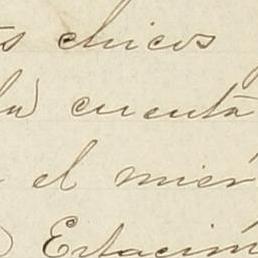 chicos
la cuenta
el miér
Estación